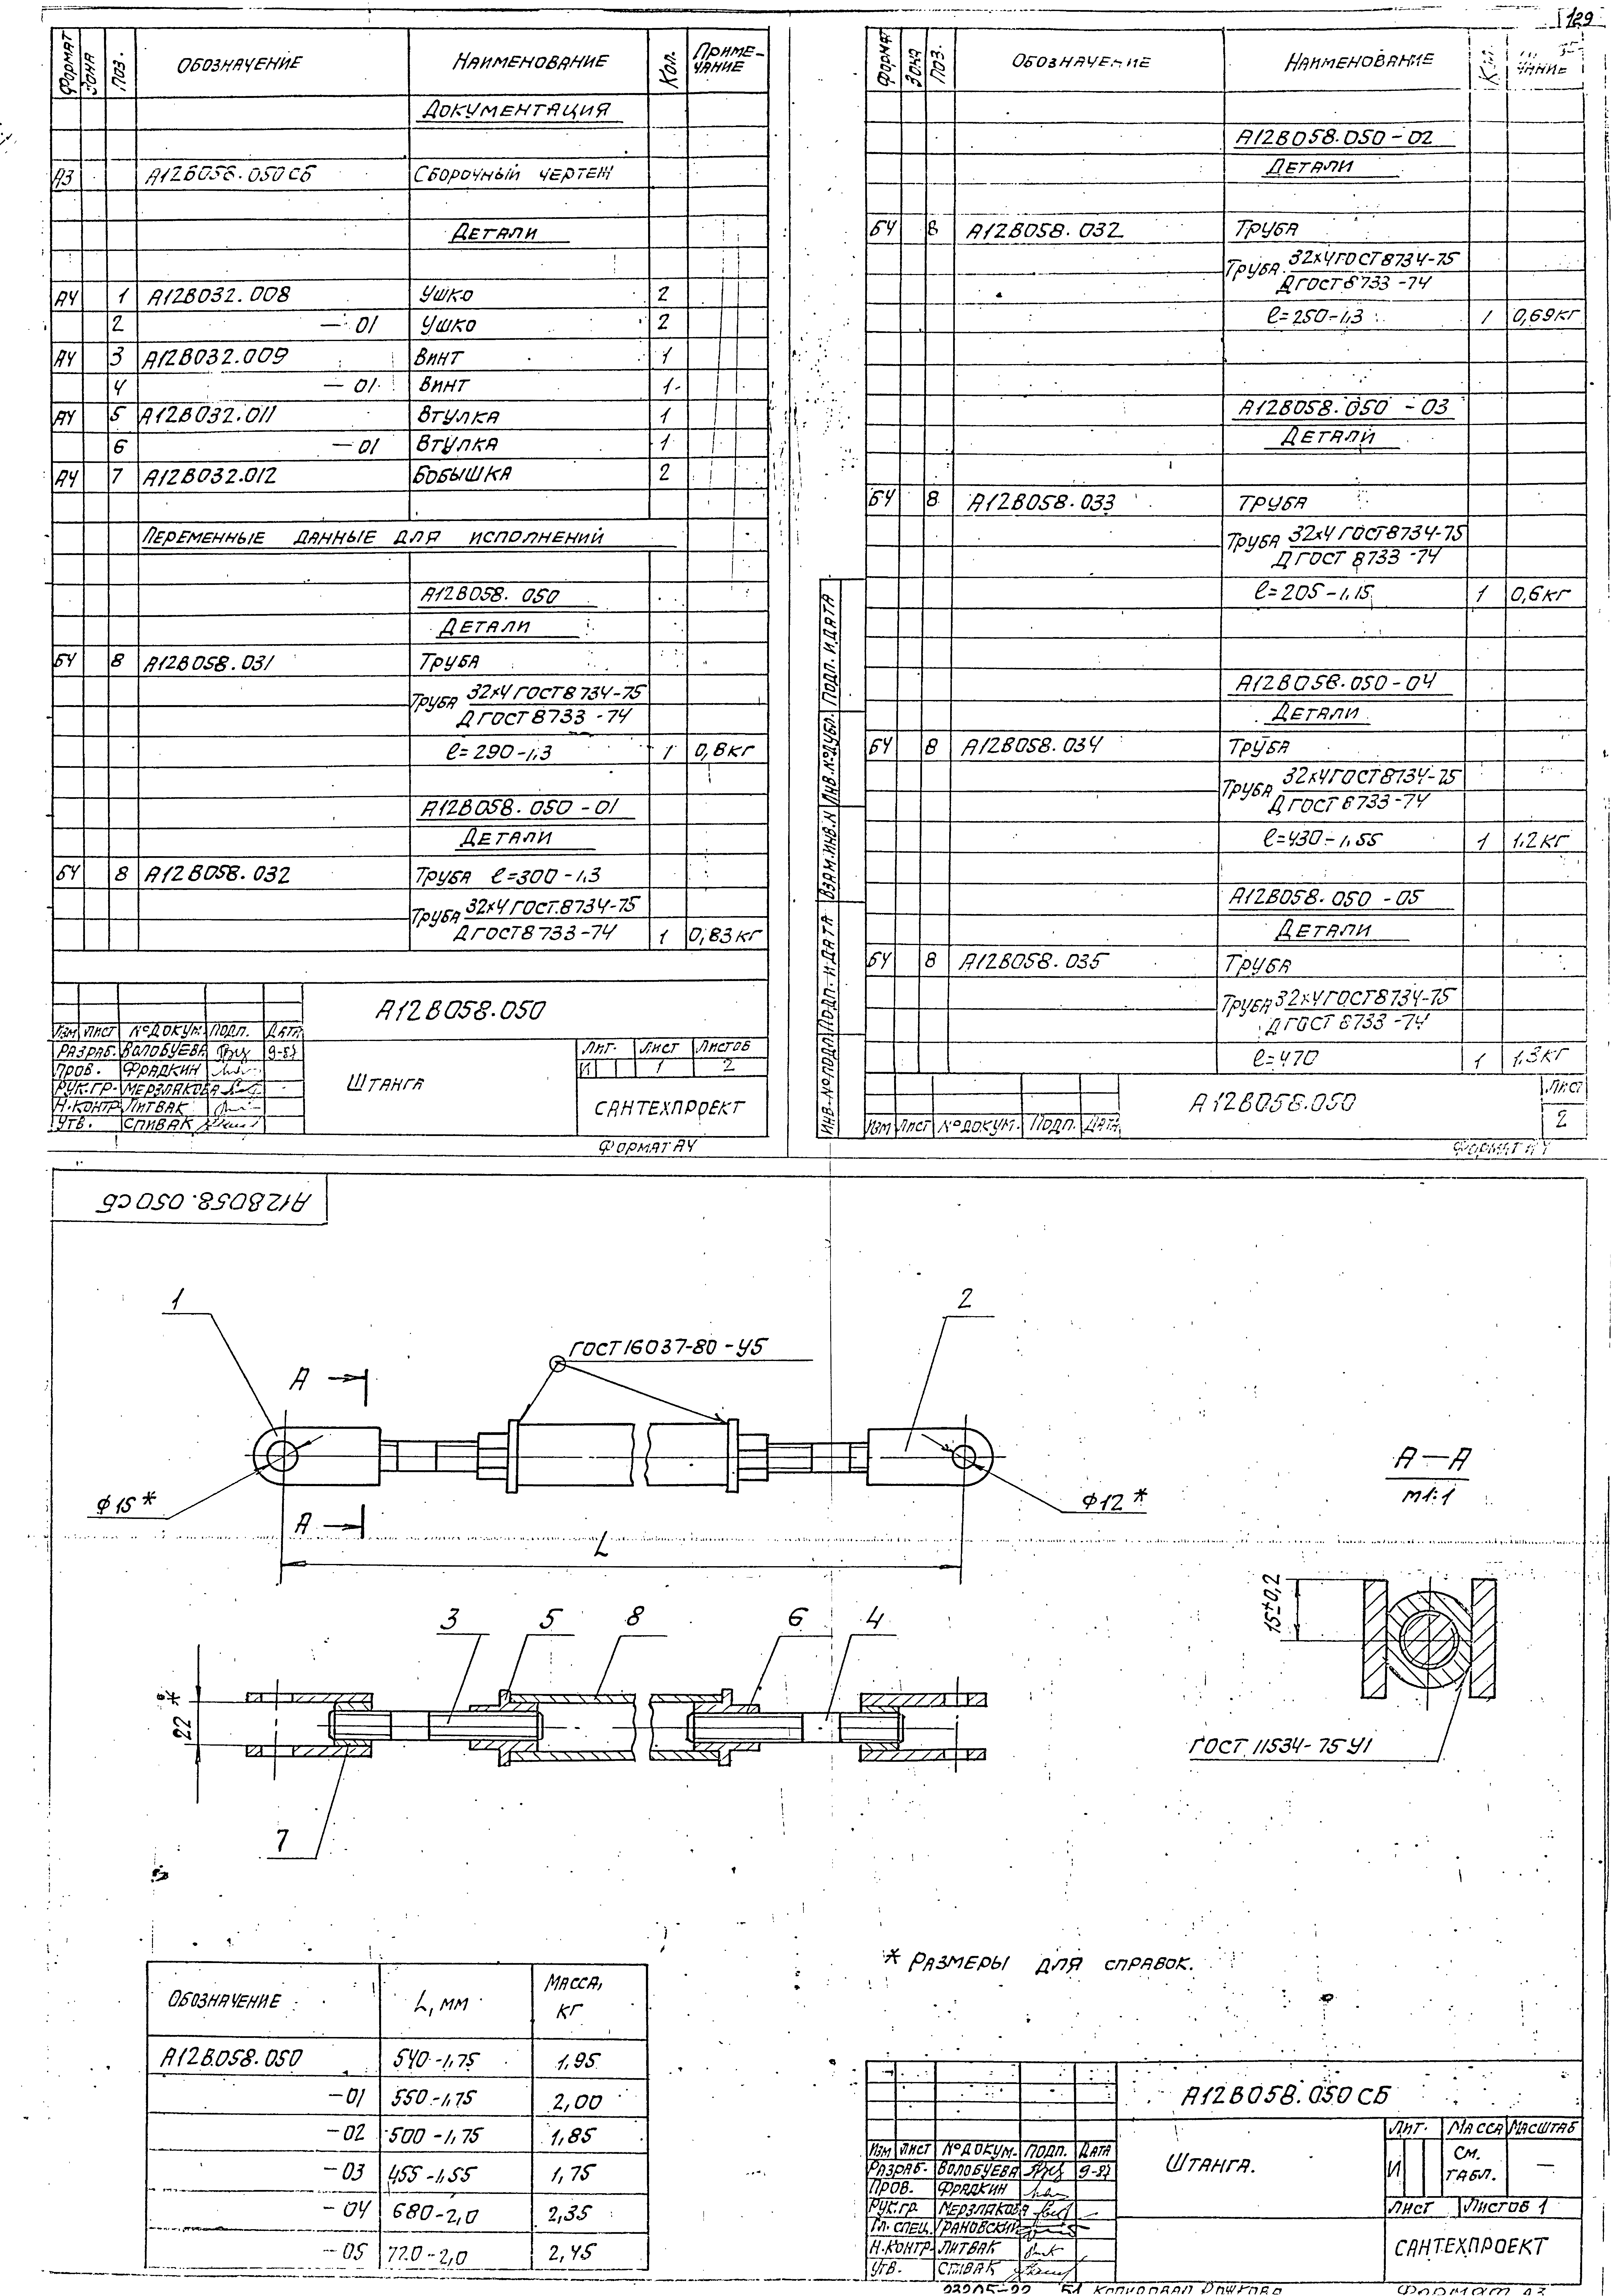 129
Формат Зона Поз. Обозначение Наименование Кол. Приме-чание
Документация
А3 А12В058.050СБ Сборочный чертеж
Детали
А4 1 А12В032.008 Ушко 2
2 —01 Ушко 2
А4 3 А12В032.009 Винт 1
4 —01 Винт 1
А4 5 А12В032.011 Втулка 1
6 —01 Втулка 1
А4 7 А12В032.012 Бобышка 2
Переменные данные для исполнений
А12В058.050
Детали
БЧ 8 А12В058.031 Труба
Труба 32х4 ГОСТ 8734-75
Д ГОСТ 8733-74
ℓ=290-1,3 1 0,8кг
А12В058.050-01
Детали
БЧ 8 А12В058.032 Труба ℓ=300-1,3
Труба 32х4 ГОСТ.8734-75
Д ГОСТ 8733-74 1 0,83кг
А12В058.050
Изм Лист № докум. Подп. Дата
Разраб. Волобуева 9-87
Пров. Фрадкин
Рук.гр. Мерзлякова
Н.контр Литвак
Утв. Спивак
Штанга
Лит. Лист Листов
И 1 2
САНТЕХПРОЕКТ
Формат А4
Формат Зона Поз. Обозначение Наименование Кол. чание
А12В058.050-02
Детали
БЧ 8 А12В058.032 Труба
Труба 32х4 ГОСТ 8734-75
Д ГОСТ 8733-74
ℓ=250-1,3 1 0,69кг
А12В058.050-03
Детали
БЧ 8 А12В058.033 Труба
Труба 32х4 ГОСТ 8734-75
Д ГОСТ 8733-74
ℓ=205-1,15 1 0,6кг
А12В058.050-04
Детали
БЧ 8 А12В058.034 Труба
Труба 32х4 ГОСТ 8734-75
Д ГОСТ 8733-74
ℓ=430-1,55 1 1,2кг
А12В058.050-05
Детали
БЧ 8 А12В058.035 Труба
Труба 32х4 ГОСТ 8734-75
Д ГОСТ 8733-74
ℓ=470 1 1,3кг
Инв.№подл Подп. и дата Взам.инв.№ Инв.№дубл. Подп. и дата
Изм Лист № докум. Подп. Дата
А12В058.050
Лист
2
Формат А4
А12В058.050СБ
1
2
ГОСТ 16037-80-У5
А
А
ϕ15*
ϕ12*
L
А—А
М1:1
15±0,2
ГОСТ 11534-75 У1
3 5 8 6 4
22*
7
* Размеры для справок.
Обозначение L, мм Масса, кг
А12В058.050 540-1,75 1,95
-01 550-1,75 2,00
-02 500-1,75 1,85
-03 455-1,55 1,75
-04 680-2,0 2,35
-05 720-2,0 2,45
А12В058.050СБ
Изм Лист № докум. Подп. Дата
Разраб. Волобуева 9-87
Пров. Фрадкин
Рук.гр. Мерзлякова
Гл.спец. Грановский
Н.контр. Литвак
Утв. Спивак
Штанга.
Лит. Масса Масштаб
И См. табл. —
Лист Листов 1
САНТЕХПРОЕКТ
Копировал
Формат А3